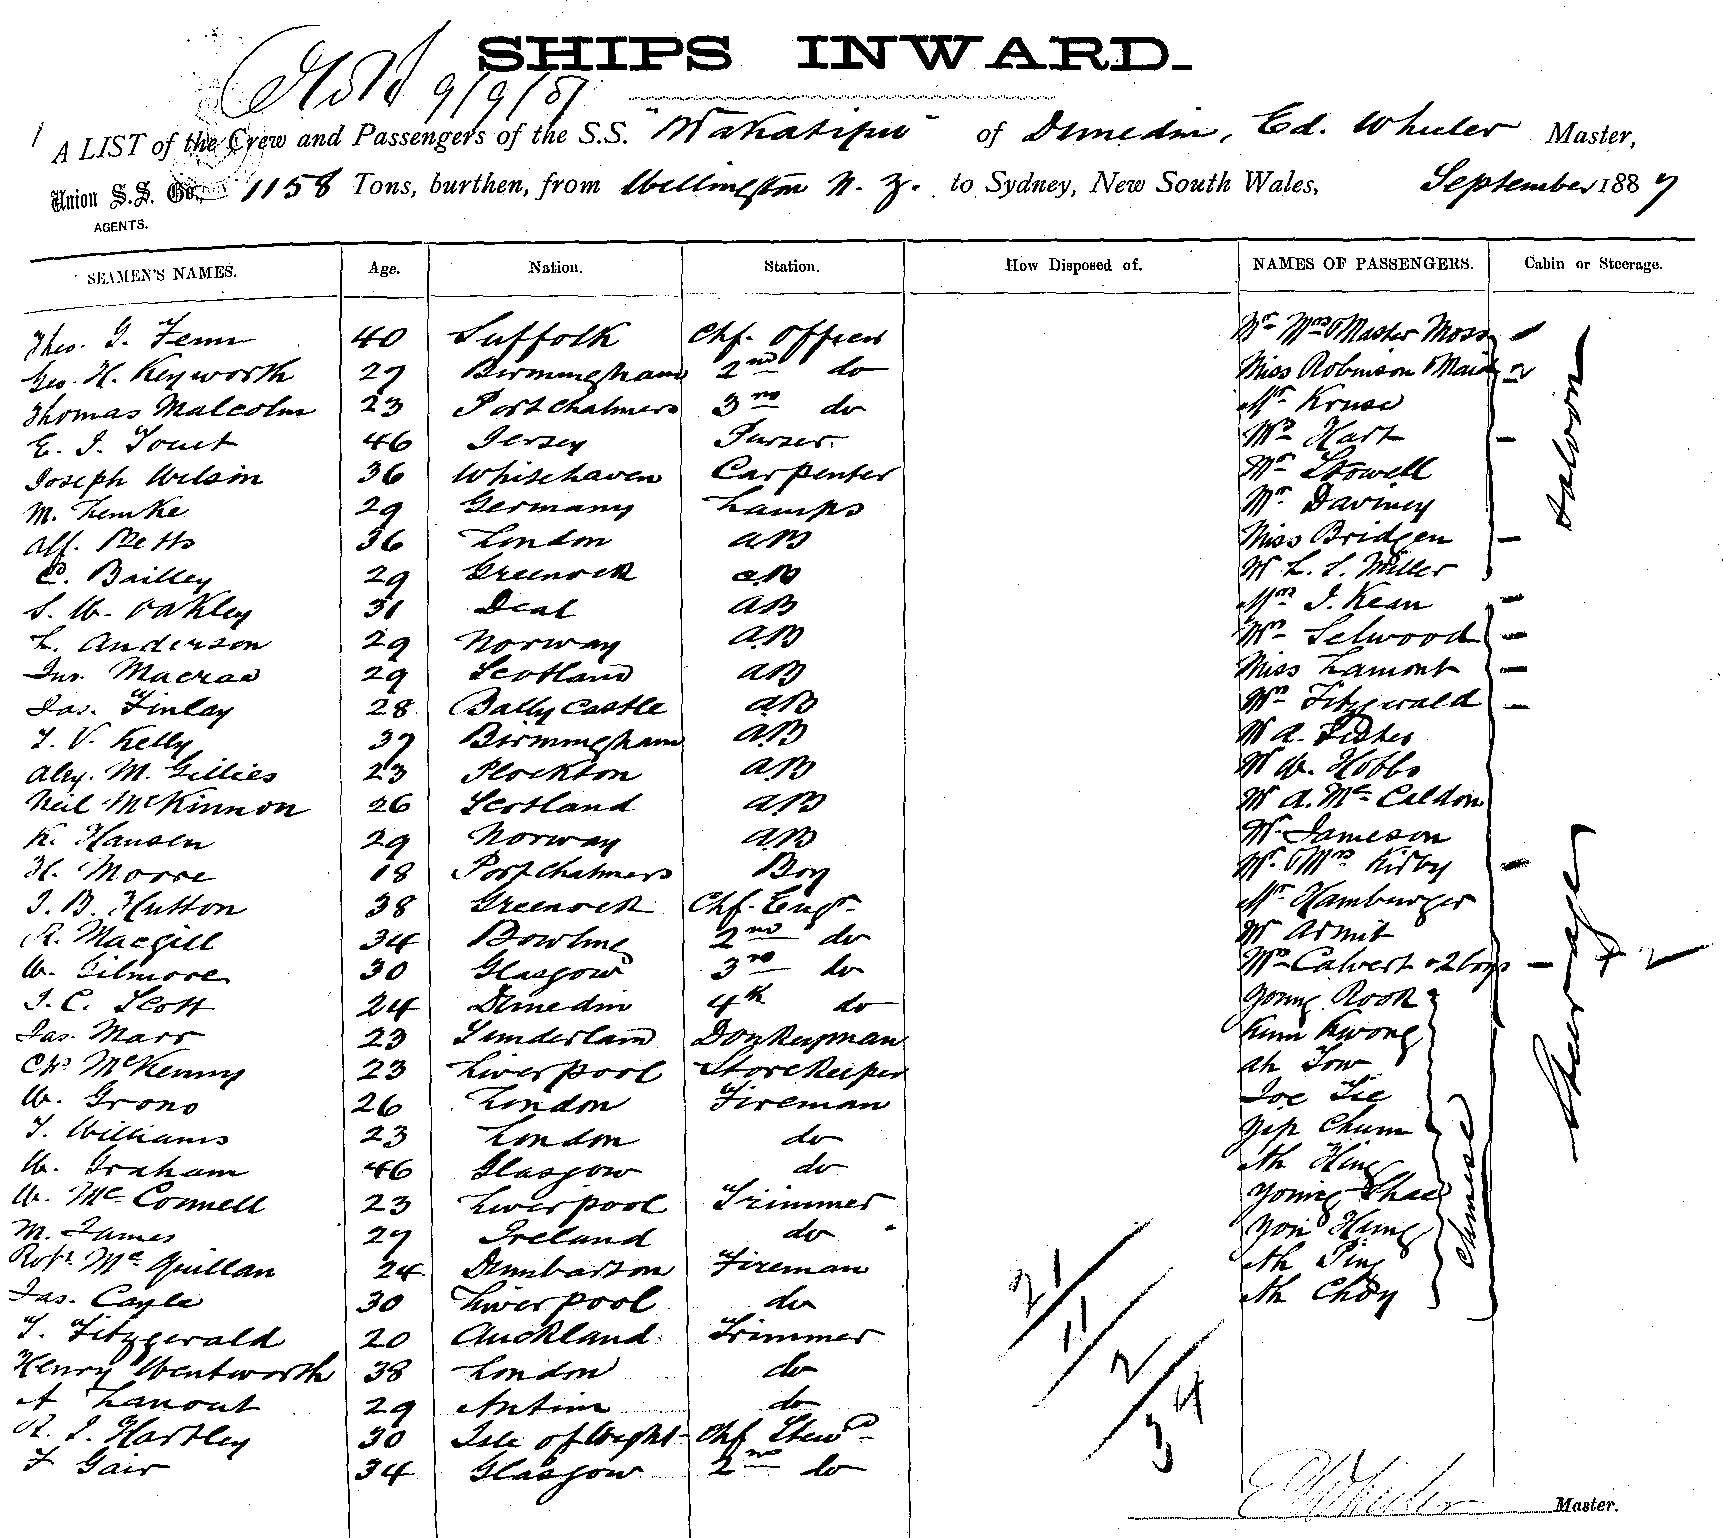 SHIPS INWARD.
9/9/87
A LIST of the Crew and Passengers of the S.S. "Wakatipu" of Dunedin, Ed. Wheeler Master,
Union S.S. Co., 1158 Tons, burthen, from Wellington N. Z. to Sydney, New South Wales, September 1887
AGENTS.
SEAMEN'S NAMES. Age. Nation. Station. How Disposed of. NAMES OF PASSENGERS. Cabin or Steerage.
Thos. J. Fenn 40 Suffolk Chf. Officer Mr Mrs & Master Moss
Geo. H. Keyworth 27 Birmingham 2nd do Miss Robinson & Maid 2
Thomas Malcolm 23 Port Chalmers 3rd do Mr Kruse
E. J. 46 Jersey Purser Mrs Hart
Joseph Wilson 36 Whitehaven Carpenter Mr Stowell
M. Lemke 29 Germany Lamps Mr Daviney
Alf. Betts 36 London AB Miss Bridgen
C. Bailley 29 Greenock AB Mr L. L. Miller
Saloon
S. W. Oakley 31 Deal AB Mrs J. Kean
L. Anderson 29 Norway AB Mrs Selwood
Jno. Macrae 29 Scotland AB Miss Lamont
Jas. Finlay 28 Ballycastle AB Mrs Fitzgerald
T. V. Kelly 37 Birmingham AB Mr A. Fisher
Alex. M. Gillies 23 Plockton AB Mr W. Hobbs
Neil McKinnon 26 Scotland AB Mr A. McCaldon
K. Hansen 29 Norway AB Mr Jameson
H. Moore 18 Port Chalmers Boy Mr & Mrs Kirby
J. B. Hutton 38 Greenock Chf. Engr Mr Hamburger
R. Macgill 34 Bowling 2nd do Mr Armit
W. Gilmore 30 Glasgow 3rd do Mrs Calvert & 2 boys
Steerage
2
J. C. Scott 24 Dunedin 4th do Young Rook
Jas. Marr 23 Sunderland Donkeyman Kum Kwong
Chs McKenny 23 Liverpool Storekeeper Ah Tow
W. Grono 26 London Fireman Joe Tie
T. Williams 23 London do Yip Chum
W. Graham 46 Glasgow do Ah Hing
W. McConnell 23 Liverpool Trimmer Young Shae
M. James 27 Ireland do Yon Hang
Robt McQuillan 24 Dumbarton Fireman Ah Ping
Jas. Coyle 30 Liverpool do Ah Choy
Chinese
T. Fitzgerald 20 Auckland Trimmer
Henry Wentworth 38 London do
A Lanout 29 Antrim do
R. J. Hartley 30 Isle of Wight Chf Stewd
F Gair 34 Glasgow 2nd do
21
11
2
34
E Wheeler Master.